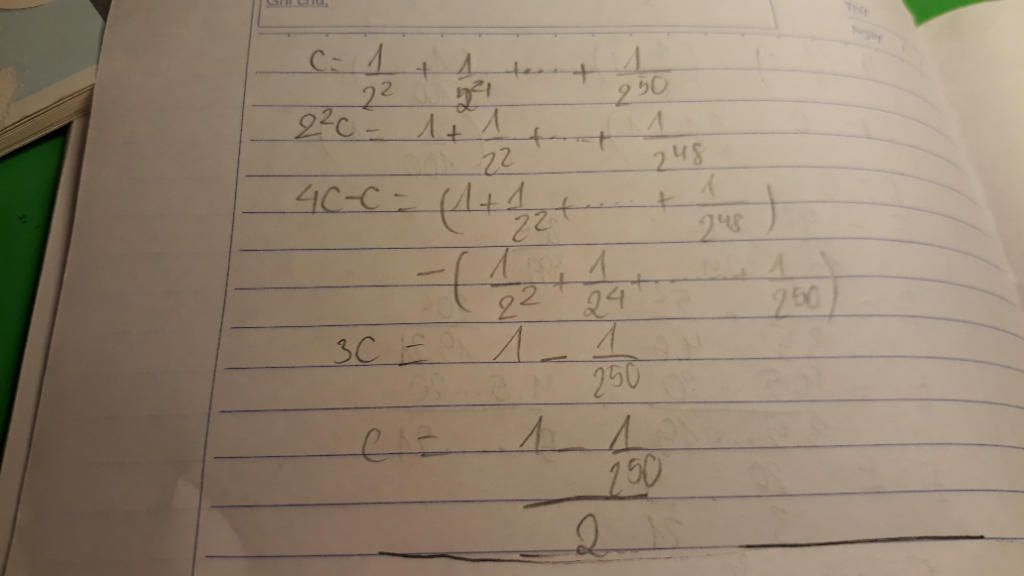 Ghi chú:
Thứ
Ngày
C = 1/2² + 1/2⁴ + ... + 1/2⁵⁰
2²C = 1 + 1/2² + ... + 1/2⁴⁸
4C - C = (1 + 1/2² + ..... + 1/2⁴⁸)
- (1/2² + 1/2⁴ + ...... + 1/2⁵⁰)
3C = 1 - 1/2⁵⁰
C = 1 - 1/2⁵⁰
2